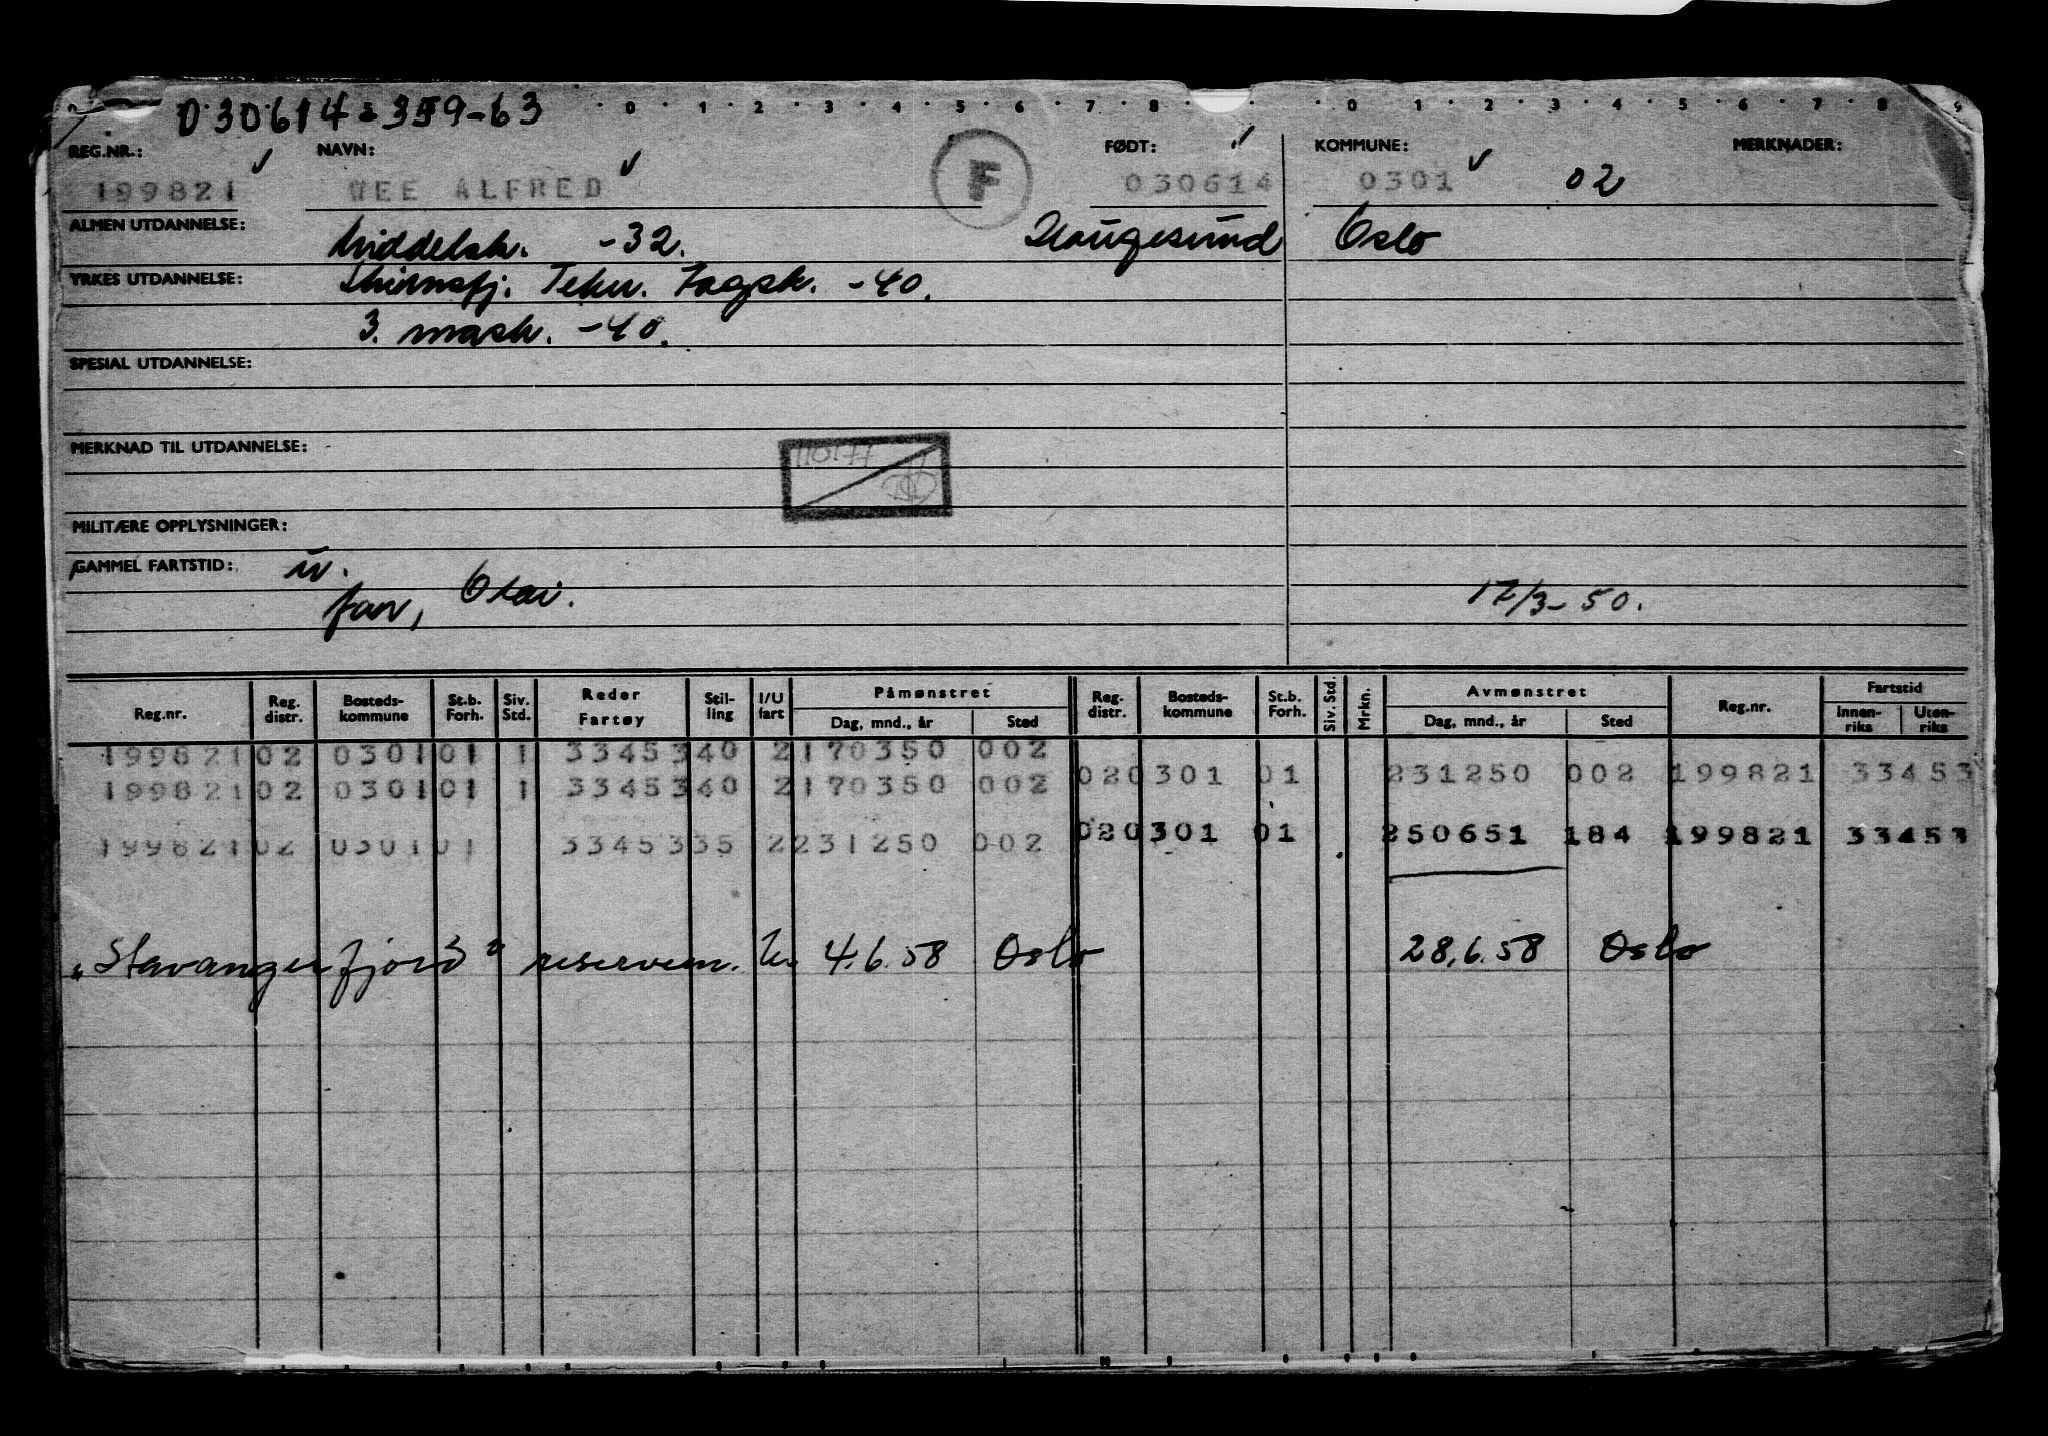 030614 359-63
0 1 2 3 4 5 6 7 8 0 1 2 3 4 5 6 7 8 9
REG.NR.: NAVN: FØDT: KOMMUNE: MERKNADER:
199821 WEE ALFRED F 030614 0301 02
ALMEN UTDANNELSE: Middelsk. -32. Haugesund Oslo
YRKES UTDANNELSE: Tekn. Fagsk. -40.
3. mask. -40.
SPESIAL UTDANNELSE:
MERKNAD TIL UTDANNELSE:
MILITÆRE OPPLYSNINGER:
GAMMEL FARTSTID: u.
far, Olai. 17/3-50.
Reg.nr. Reg. distr. Bosteds-kommune St.b. Forh. Siv. Std. Reder Fartøy Stil-ling I/U fart Påmønstret Dag, mnd., år Sted Reg. distr. Bosteds-kommune St.b. Forh. Siv. Std. Mrkn. Avmønstret Dag, mnd., år Sted Reg.nr. Fartstid Innen-riks Uten-riks
199821 02 0301 01 1 33453 40 2 170350 002
020301 01 231250 002 199821 33453
199821 02 0301 01 1 33453 40 2 170350 002
020301 01 250651 184 199821 33453
199821 02 0301 01 33453 35 2 231250 002
"Stavangerfjord" reservem. U. 4.6.58 Oslo 28.6.58 Oslo